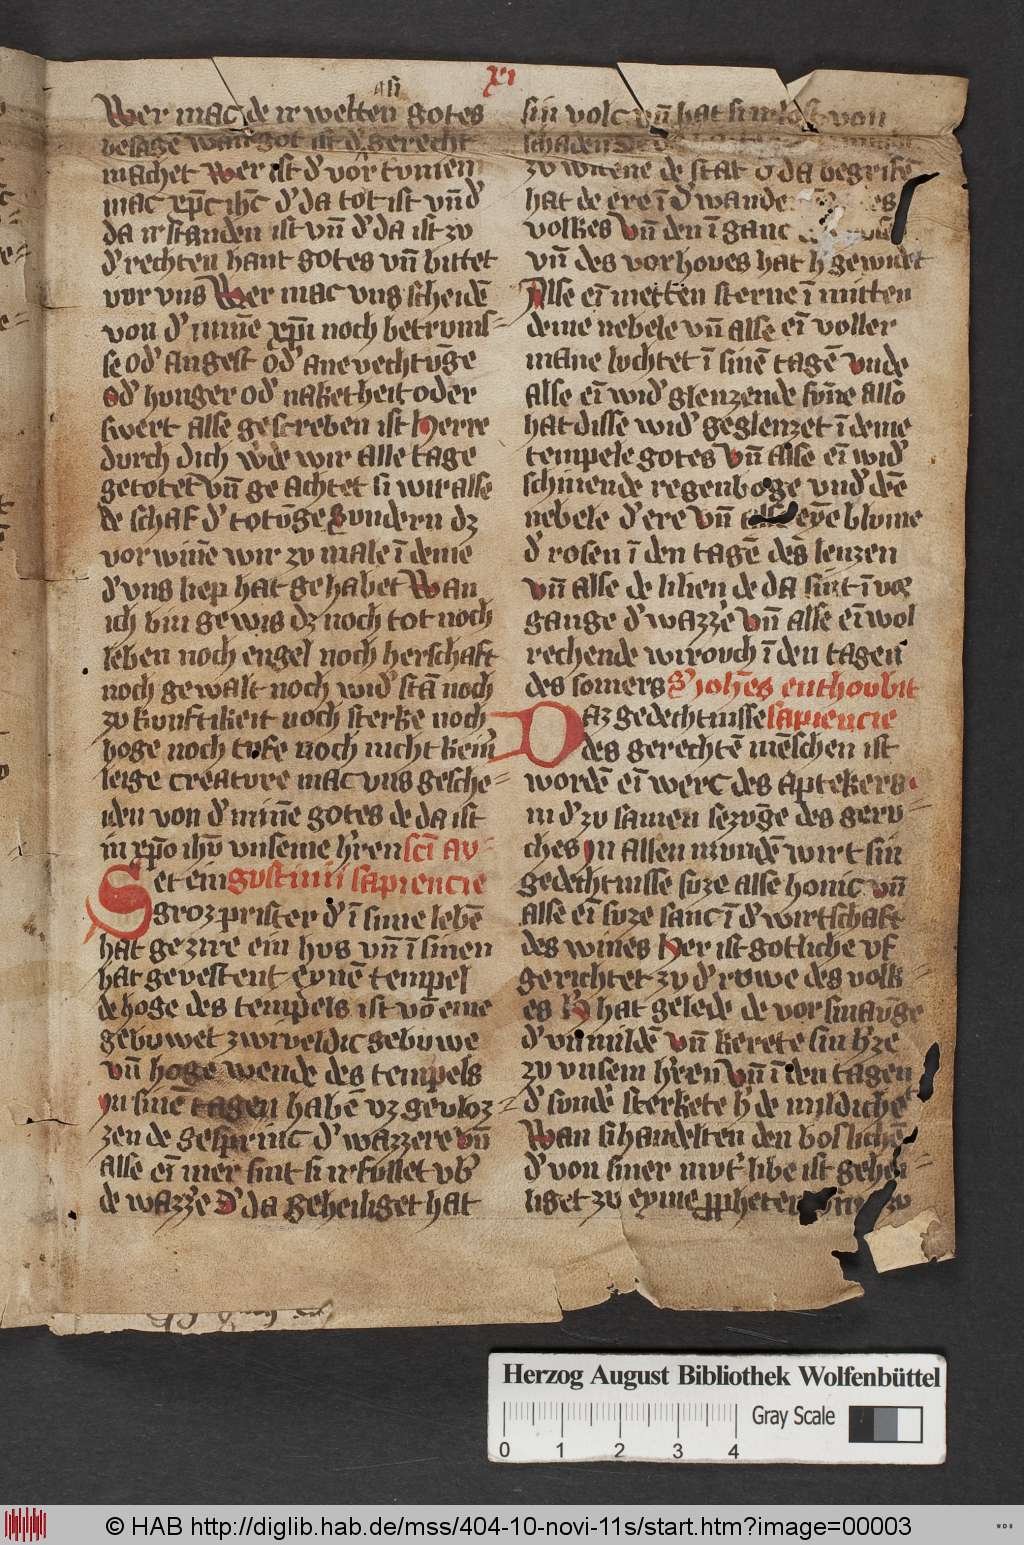 xi
Wer mac de ir welten gotes
besagē wan got ist d' gerecht
machet Wer ist d' vortumen
mac xp̄c ih̄c d' da tot ist vn̄ d'
da irstanden ist vn̄ d' da ist zv
d' rechten hant gotes vn̄ bittet
vor vns Wer mac vns scheidē
von d' min̄e xp̄i noch betrvms-
se od' angest od' anevechtvnge
od' hvnger od' naketheit oder
swert alse gescreben ist Herre
dvrch dich w'de wir alle tage
getotet vn̄ geachtet si wir alse
de schaf d' totvn̄ge Svndern dz
vorwin̄e wir zv male ī deme
d' vns liep hat gehabet Wan
ich bin gewis dz noch tot noch
leben noch engel noch herschaft
noch gewalt noch wid'stā noch
zvkvnftikeit noch sterke noch
hoge noch tufe noch nicht kein'
leige creatvre mac vns gesche-
iden von d' min̄e gotes de da ist
in xp̄o ih̄v vnseme h'ren scī av-
Set ein gvstinii sapiencie
groz prister d' ī sime lebē
hat gezire ein hvs vn̄ ī sinen
hat gevestent eynē tempel
de hoge des tempels ist vō eme
gebvwet zwiveldic gebvwe
vn̄ hoge wende des tempels
In sinē tagen habē vz gevloz-
zen de gesprinc d' wazzere vn̄
alse eī mer sint si irfvllet vb'
de wazz'e D' da geheiliget hat
sin volc vn̄ hat si irlost von
schaden
zv witene de stat d' da begrifē
hat de ere ī d' wande
volkes vn̄ den īganc
vn̄ des vorhoves hat h' gewidet
Alse eī metten sterne ī mitten
deme nebele vn̄ alse eī voller
mane lvchtet ī sinē tagē vnde
alse eī wid' glenzende svn̄e also
hat disse wid' geglenzet ī deme
tempele gotes Vn̄ alse eī wid'
schinende regenboge vnd' dē
nebele d' ere vn̄ alse eyne blvme
d' rosen ī den tagē des lenzen
vn̄ alse de lilien de da sint ī vor
gange d' wazz'e Vn̄ alse eī wol
rechende wirovch ī den tagen
des somers S' johēs enthovbit
Daz gedechtnisse sapiencie
des gerechtē mēschen ist
wordē eī werc des aptekers
in d' zv samen sezvn̄ge des gerv-
ches In allen mvndē wirt sin
gedechtnisse svze alse honic vn̄
alse eī svze sanc ī d' wirtschaft
des wines Her ist gotliche vf
gerichtet zv d' rvwe des volk-
es h' hat gelede de vorsmavn̄ge
d' vnmildē vn̄ kerete sin h'ze
zv vnsem h'ren vn̄ ī den tagen
d' svnde' sterkete h' de mildicheit
Wan si handelten den boslichē
d' von siner mvt' libe ist gehei-
liget zv eyme ppheten vnn zv
Herzog August Bibliothek Wolfenbüttel
Gray Scale
0 1 2 3 4
© HAB http://diglib.hab.de/mss/404-10-novi-11s/start.htm?image=00003